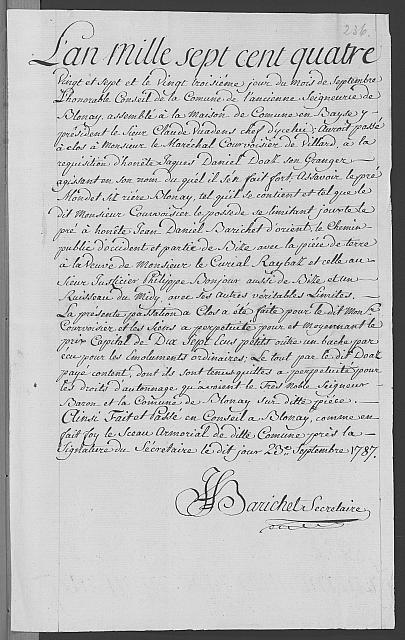 236.
L'an mille sept cent quatre
vingt et sept et le vingt troisiéme jour du mois de septembre
l'honorable Conseil de la Comune de l'ancienne Seigneurie de
Blonay, assemblé à la maison de Comune en Bayse y
président le Sieur Claude Vuadens chef d'ycelui; auroit passé
à clos à Monsieur le Maréchal Courvoisier de Villard, à la
requisition d'honête Jaques Daniel Doak son Granger
agissant en son nom du quél il s'ést fait fort. Assavoir le pré
Mondet sit riére Blonay, tel qu'il se contient et tel que le
dit Monsieur Courvoisier le possede se limitant jouxte le
pré à honête Jean Daniel Barichet d'orient, le Chemin
public d'occident et partie de Bize avec la piéce de terre
à la Veuve de Monsieur le Curial Raybaz et celle au
Sieur Justicier Philippe Bonjour aussi de Bize et un
Ruisseau du Midy, avec ses autres véritables Limites.
La présente passation à Clos a été faite pour le dit Mons.r
Courvoisier et les siens a perpétuité pour et moyennant le
prix Capital de Dix Sept Ecus petits outre un bache par
ecu pour les Emoluments ordinaires; Le tout par le dit Doak
payé content, dont ils sont tenus quittes a perpétuité pour
les droits d'autonnage qu'avoient le Trés Noble Seigneur
Baron et la Comune de Blonay sur ditte piéce.
Ainsi Fait et Passé en Conseil a Blonay, comme en
fait foy le Sceau Armorial de ditte Comune prés la
Signature du Sécretaire le dit jour 23e. Septembre 1787.
Barichet Secretaire